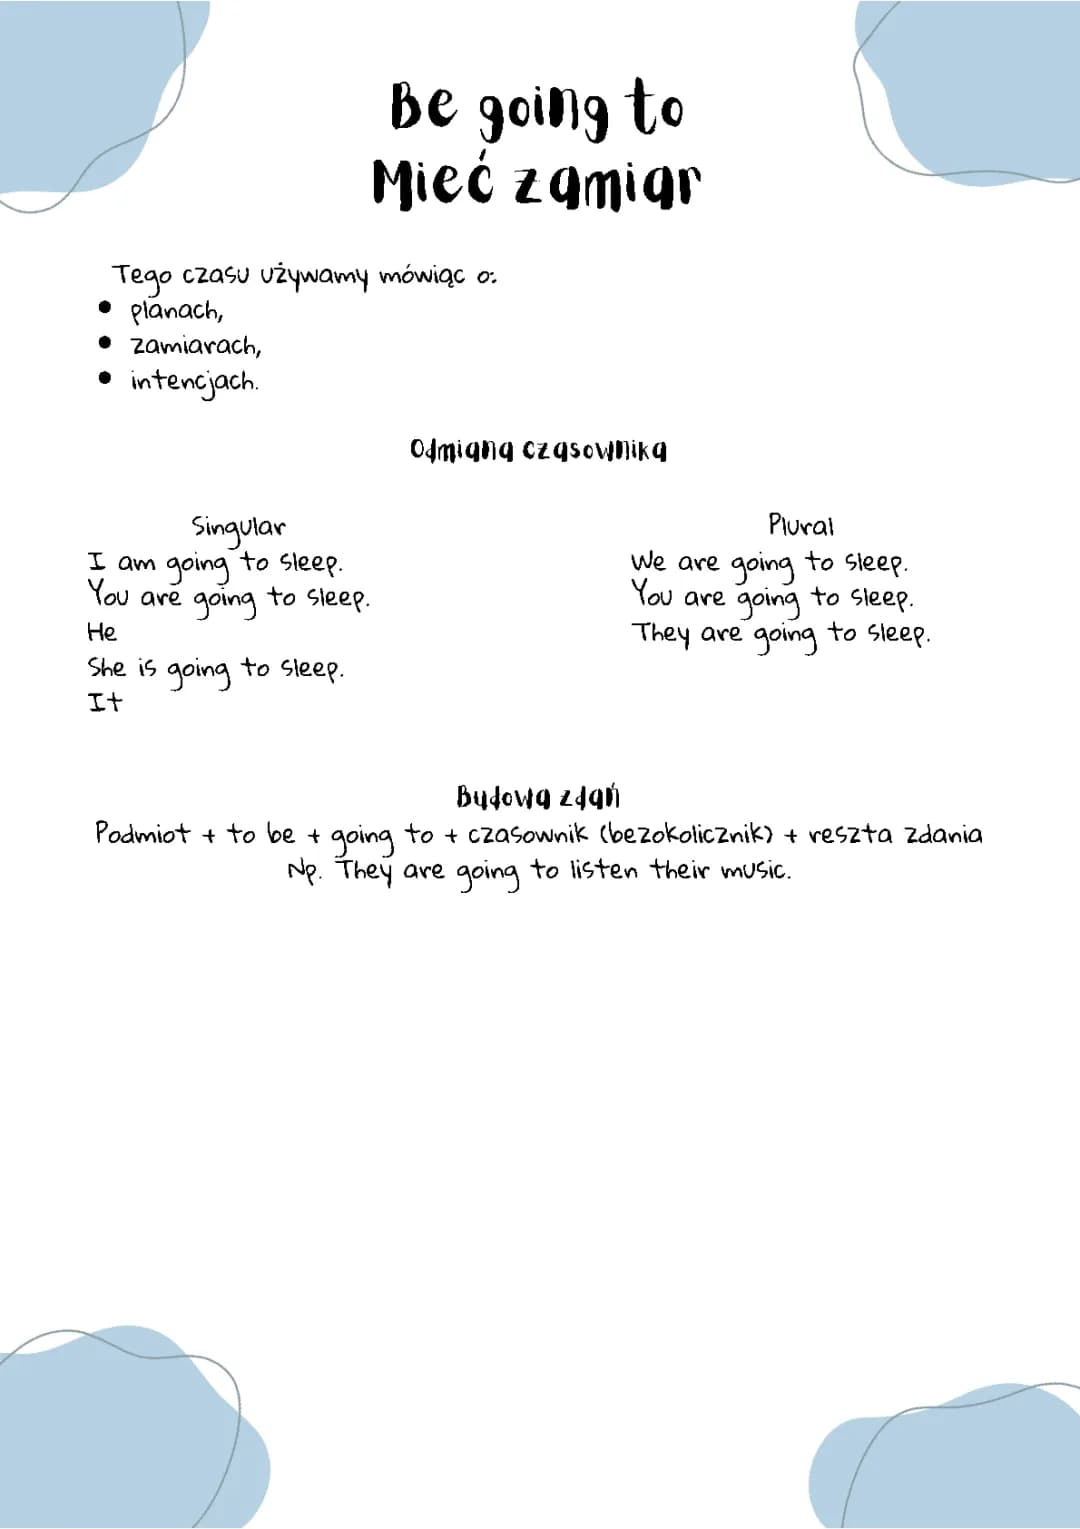 Be going to
Mieć zamiar
Tego czasu używamy mówiąc o:
• planach,
• zamiarach,
• intencjach.
Odmiana czasownika
Singular
I am going to sleep.
You are going to sleep.
He
She is going to sleep.
It
Plural
We are going to sleep.
You are going to sleep.
They are going to sleep.
Budowa zdań
Podmiot + to be + going to + czasownik (bezokolicznik) + reszta zdania
Np. They are going to listen their music.